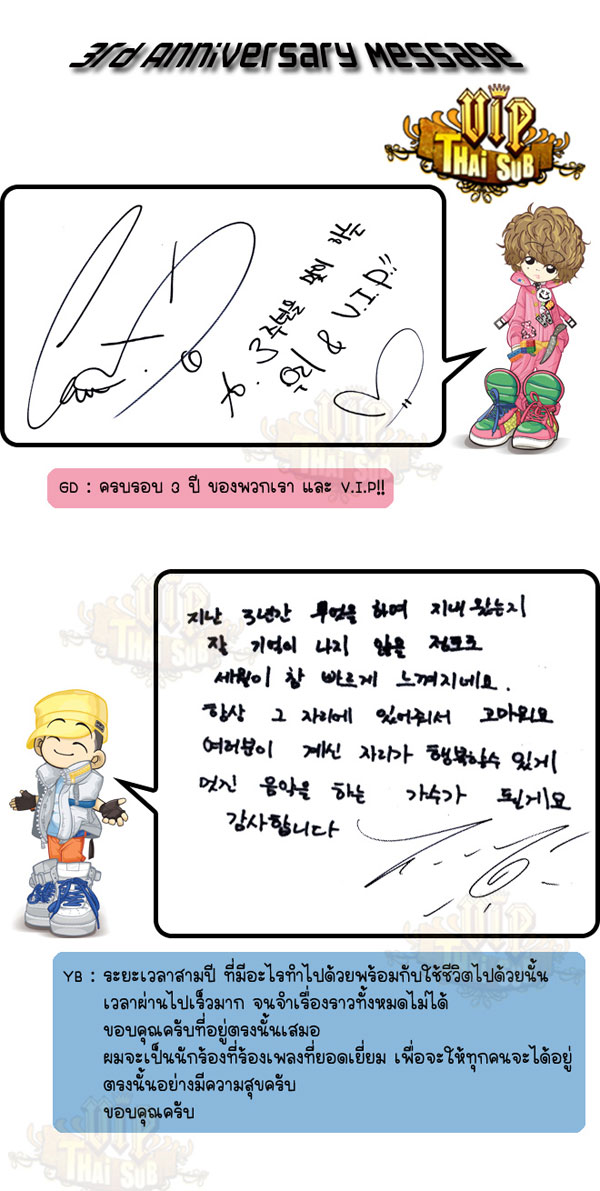 3rd Anniversary Message
VIP
THAI SUB
to. 3주년을 맞이 한
우리 & V.I.P!!
VIP
THAI SUB
GD : ครบรอบ 3 ปี ของพวกเรา และ V.I.P!!
VIP
THAI SUB
지난 3년간 무엇을 하며 지내 왔는지
잘 기억이 나지 않을 정도로
세월이 참 빠르게 느껴지네요.
항상 그 자리에 있어줘서 고마워요
여러분이 계신 자리가 행복할수 있게
멋진 음악을 하는 가수가 될게요
감사합니다
YB : ระยะเวลาสามปี ที่มีอะไรทำไปด้วยพร้อมกับใช้ชีวิตไปด้วยนั้น
เวลาผ่านไปเร็วมาก จนจำเรื่องราวทั้งหมดไม่ได้
ขอบคุณครับที่อยู่ตรงนั้นเสมอ
ผมจะเป็นนักร้องที่ร้องเพลงที่ยอดเยี่ยม เพื่อจะให้ทุกคนจะได้อยู่
ตรงนั้นอย่างมีความสุขครับ
ขอบคุณครับ
VIP
THAI SUB